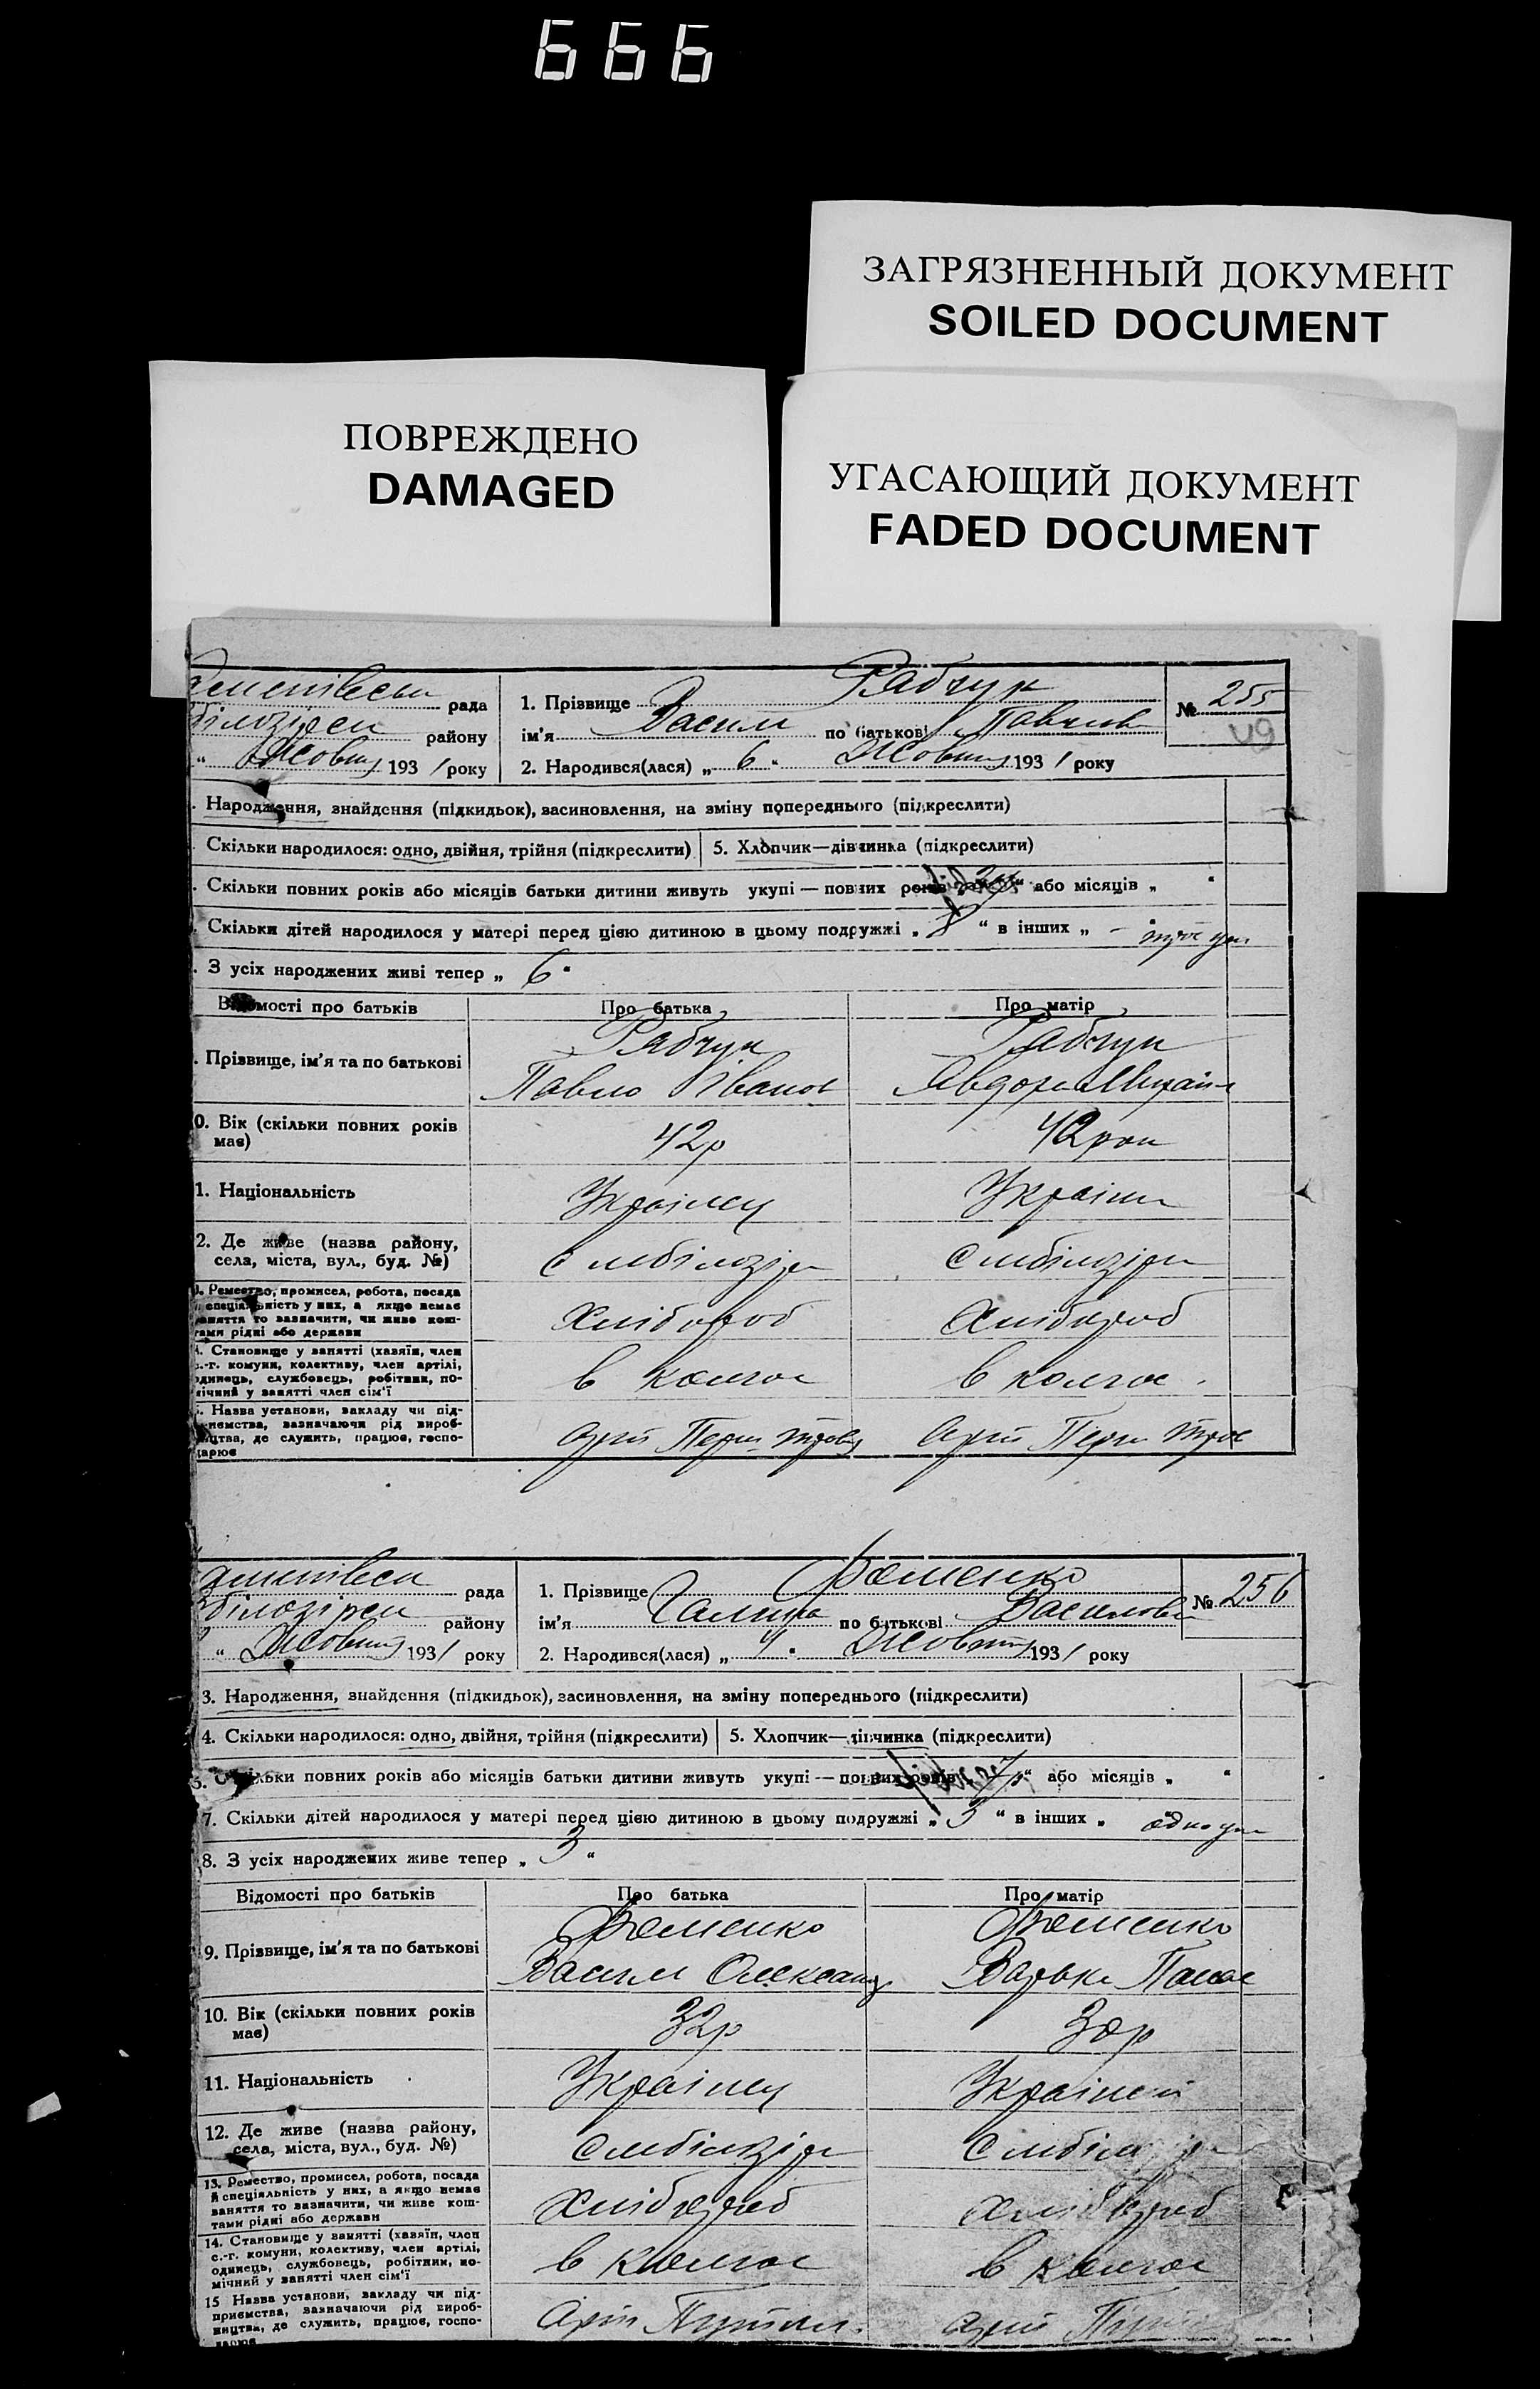 666
ЗАГРЯЗНЕННЫЙ ДОКУМЕНТ
SOILED DOCUMENT
ПОВРЕЖДЕНО
DAMAGED
УГАСАЮЩИЙ ДОКУМЕНТ
FADED DOCUMENT
рада
1. Прізвище Рябчук
№ 255
району
ім'я Васили по батькові Павлов
" Жовтня 1931 року
2. Народився(лася) „ 6 " Жовтня 1931 року
. Народження, знайдення (підкидьок), засиновлення, на зміну попереднього (підкреслити)
Скільки народилося: одно, двійня, трійня (підкреслити) 5. Хлопчик—дівчинка (підкреслити)
. Скільки повних років або місяців батьки дитини живуть укупі — повних років " або місяців „ "
. Скільки дітей народилося у матері перед цією дитиною в цьому подружжі „ 8 " в інших „ –
. З усіх народжених живі тепер „ 6 "
Відомості про батьків Про батька Про матір
. Прізвище, ім'я та по батькові
Рябчук Рябчук
Павло Іванов
0. Вік (скільки повних років
має)
42р
1. Національність Українец
2. Де живе (назва району,
села, міста, вул., буд. №)
. Ремество, промисел, робота, посада
й спеціяльність у них, а якщо немає
заняття то зазначити, чи живе кош-
тами рідні або держави
Хлібороб Хлібороб
. Становище у занятті (хазяїн, член
с.-г. комуни, колективу, член артілі,
одинець, службовець, робітник, по-
мічний у занятті член сім'ї
в колгос в колгос
. Назва установи, закладу чи під-
приємства, зазначаючи рід вироб-
ництва, де служить, працює, госпо-
дарює
рада
1. Прізвище Фоменко
№ 256
району
ім'я Галина по батькові Василови
" Жовтня 1931 року
2. Народився(лася) „ 4 " Жовтня 1931 року
3. Народження, знайдення (підкидьок), засиновлення, на зміну попереднього (підкреслити)
4. Скільки народилося: одно, двійня, трійня (підкреслити) 5. Хлопчик—дівчинка (підкреслити)
6. Скільки повних років або місяців батьки дитини живуть укупі — повних років " або місяців „ "
7. Скільки дітей народилося у матері перед цією дитиною в цьому подружжі „ 3 " в інших „
8. З усіх народжених живе тепер „ 3 "
Відомості про батьків Про батька Про матір
9. Прізвище, ім'я та по батькові
Фоменко Фоменко
10. Вік (скільки повних років
має)
32р 30р
11. Національність Українец
12. Де живе (назва району,
села, міста, вул., буд. №)
13. Ремество, промисел, робота, посада
й спеціяльність у них, а якщо немає
заняття то зазначити, чи живе кош-
тами рідні або держави
Хлібороб Хлібороб
14. Становище у занятті (хазяїн, член
с.-г. комуни, колективу, член артілі,
одинець, службовець, робітник, по-
мічний у занятті член сім'ї
в колгос в колгос
15 Назва установи, закладу чи під-
приємства, зазначаючи рід вироб-
ництва, де служить, працює, госпо-
дарює